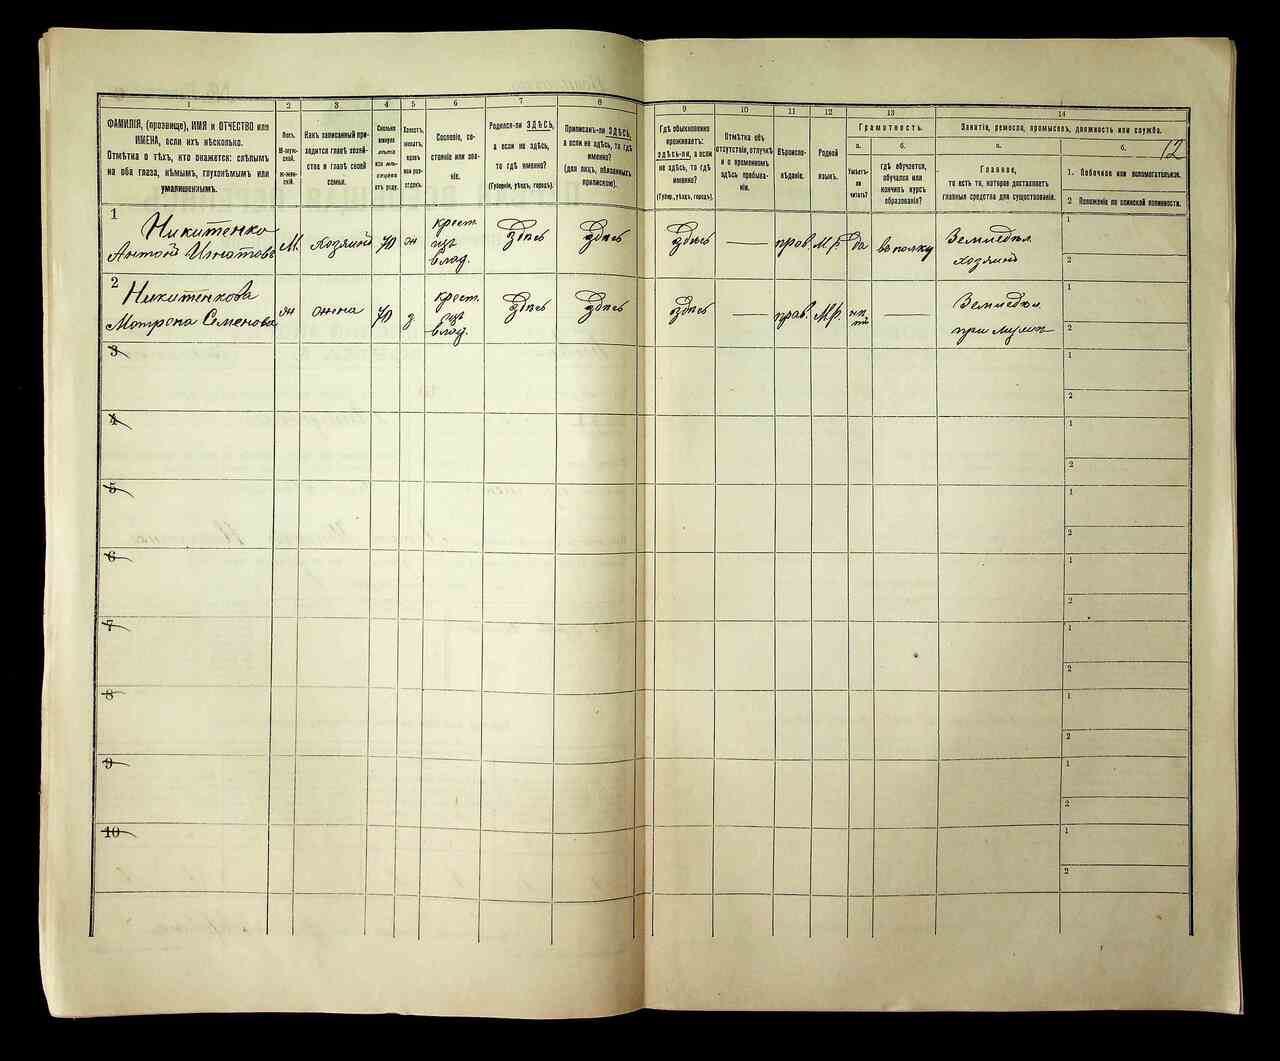 1 2 3 4 5 6 7 8 9 10 11 12 13 14
ФАМИЛІЯ, (прозвище), ИМЯ и ОТЧЕСТВО или
ИМЕНА, если ихъ нѣсколько.
Отмѣтка о тѣхъ, кто окажется: слѣпымъ
на оба глаза, нѣмымъ, глухонѣмымъ или
умалишеннымъ.
Полъ.
М-муж-
ской.
Ж-жен-
скій.
Какъ записанный при-
ходится главѣ хозяй-
ства и главѣ своей
семьи.
Сколько
минуло
лѣтъ
или мѣ-
сяцевъ
отъ роду.
Холостъ,
женатъ,
вдовъ
или раз-
веденъ.
Сословіе, со-
стояніе или зва-
ніе.
Родился-ли ЗДѢСЬ,
а если не здѣсь,
то гдѣ именно?
(Губернія, уѣздъ, городъ).
Приписанъ-ли ЗДѢСЬ,
а если не здѣсь, то гдѣ
именно?
(для лицъ, обязанныхъ
припискою).
Гдѣ обыкновенно
проживаетъ:
ЗДѢСЬ-ли, а если
не здѣсь, то гдѣ
именно?
(Губер., уѣздъ, городъ).
Отмѣтка объ
отсутствіи, отлучкѣ
и о временномъ
здѣсь пребыва-
ніи.
Вѣроиспо-
вѣданіе.
Родной
языкъ.
Грамотность.
а.
Умѣетъ-
ли
читать?
б.
гдѣ обучается,
обучался или
кончилъ курсъ
образованія?
Занятіе, ремесло, промыселъ, должность или служба.
а.
Главное,
то есть то, которое доставляетъ
главныя средства для существованія.
б.
12
1. Побочное или вспомогательное.
2 Положеніе по воинской повинности.
1
Никитенко
Антоній Игнатовъ
М.
хозяинъ
70
крест.
влад.
здѣсь
здѣсь
здѣсь
—
прав.
М.р.
да
въ полку
Земледѣл.
хозяинъ
1
2
2
Никитенкова
Матрона Семенова
жена
70
крест.
влад.
здѣсь
здѣсь
здѣсь
—
прав.
М.р.
—
Земледѣл.
1
2
3
1
2
4
1
2
5
1
2
6
1
2
7
1
2
8
1
2
9
1
2
10
1
2